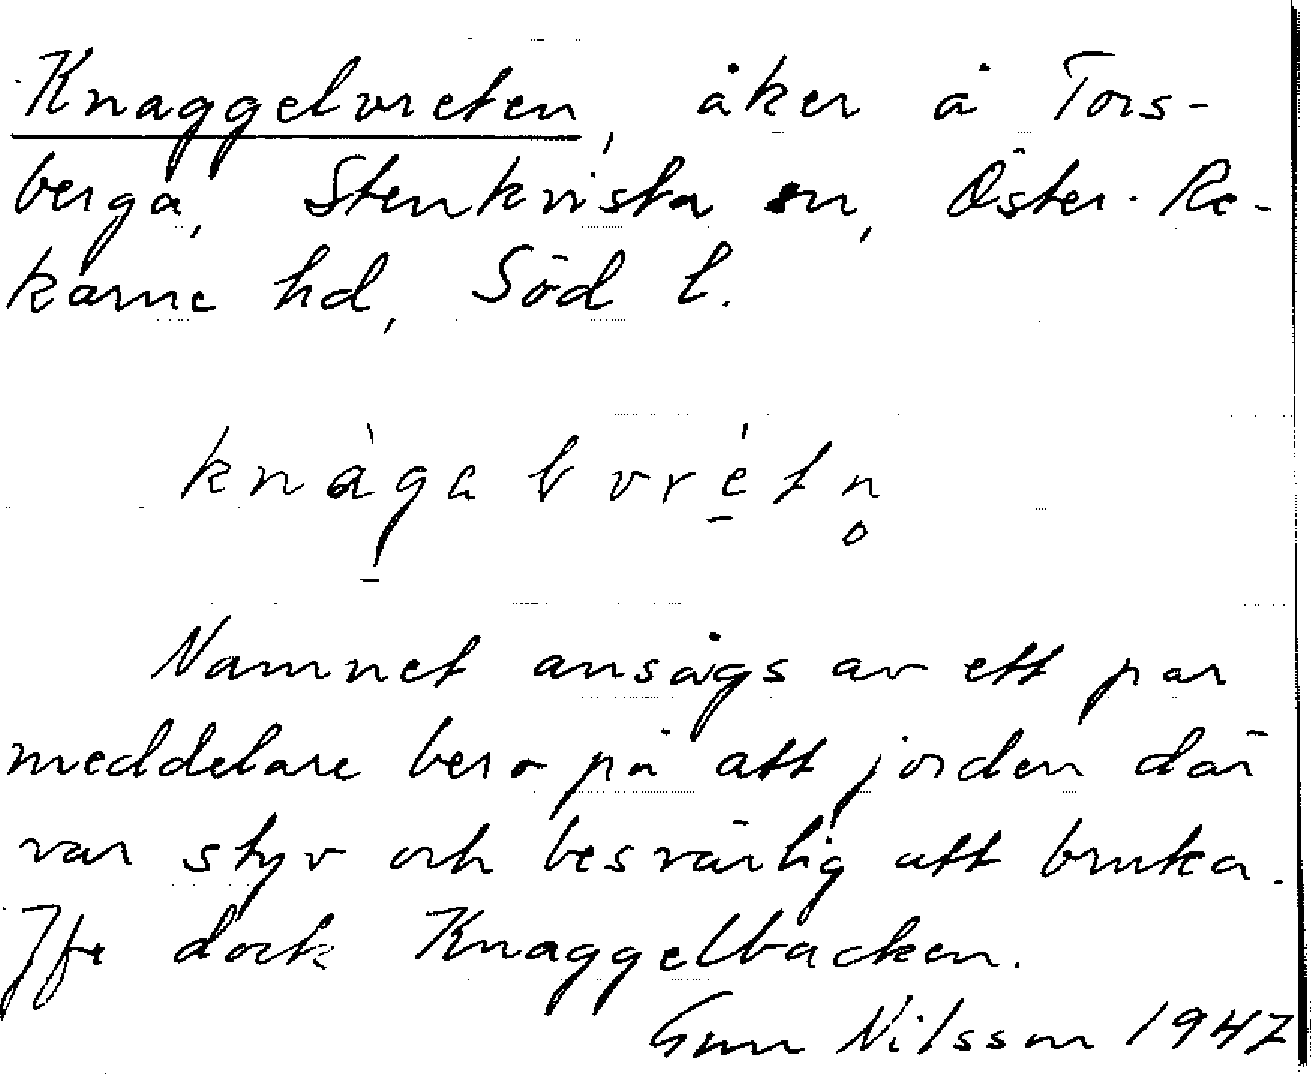 Knaggelvreten, åker å Tors-
berga, Stenkvista sn, Öster-Re-
karne hd, Söd l.
knàgal vrétn̥
Namnet ansågs av ett par
meddelare bero på att jorden där
var styv och besvärlig att bruka.
Jfr dock Knaggelbacken.
Gun Nilsson 1947